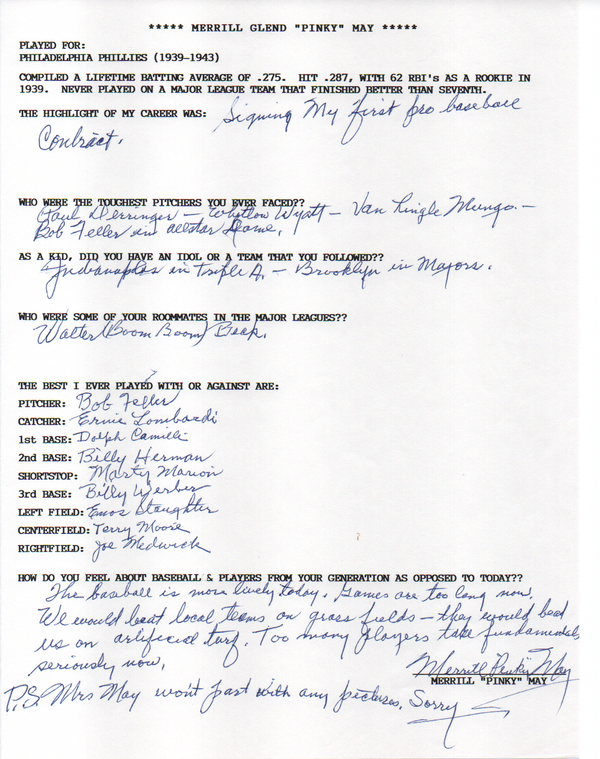 ***** MERRILL GLEND "PINKY" MAY *****
PLAYED FOR:
PHILADELPHIA PHILLIES (1939-1943)
COMPILED A LIFETIME BATTING AVERAGE OF .275. HIT .287, WITH 62 RBI's AS A ROOKIE IN
1939. NEVER PLAYED ON A MAJOR LEAGUE TEAM THAT FINISHED BETTER THAN SEVENTH.
THE HIGHLIGHT OF MY CAREER WAS: Signing My first pro baseball
Contract.
WHO WERE THE TOUGHEST PITCHERS YOU EVER FACED??
Paul Derringer — Whitlow Wyatt — Van Lingle Mungo. —
Bob Feller in allstar Game.
AS A KID, DID YOU HAVE AN IDOL OR A TEAM THAT YOU FOLLOWED??
Indianaplos in Triple A. — Brooklyn in Majors.
WHO WERE SOME OF YOUR ROOMMATES IN THE MAJOR LEAGUES??
Walter (Boom Boom) Beck.
THE BEST I EVER PLAYED WITH OR AGAINST ARE:
PITCHER: Bob Feller
CATCHER: Ernie Lombardi
1st BASE: Dolph Camilli
2nd BASE: Billy Herman
SHORTSTOP: Marty Marion
3rd BASE: Billy Werber
LEFT FIELD: Enos Slaughter
CENTERFIELD: Terry Moore
RIGHTFIELD: Joe Medwick
HOW DO YOU FEEL ABOUT BASEBALL & PLAYERS FROM YOUR GENERATION AS OPPOSED TO TODAY??
The baseball is more lively today. Games are too long now.
We would beat local teams on grass fields — they would beat
us on artificial turf. Too many players take fundamentals
seriously now.
Merrill Pinky May
MERRILL "PINKY" MAY
P.S. Mrs May won't part with any pictures. Sorry